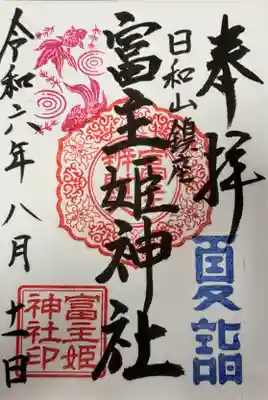 奉拝
夏詣
日和山鎮座
富主姫神社
令和六年八月十一日
富主姫
神社印